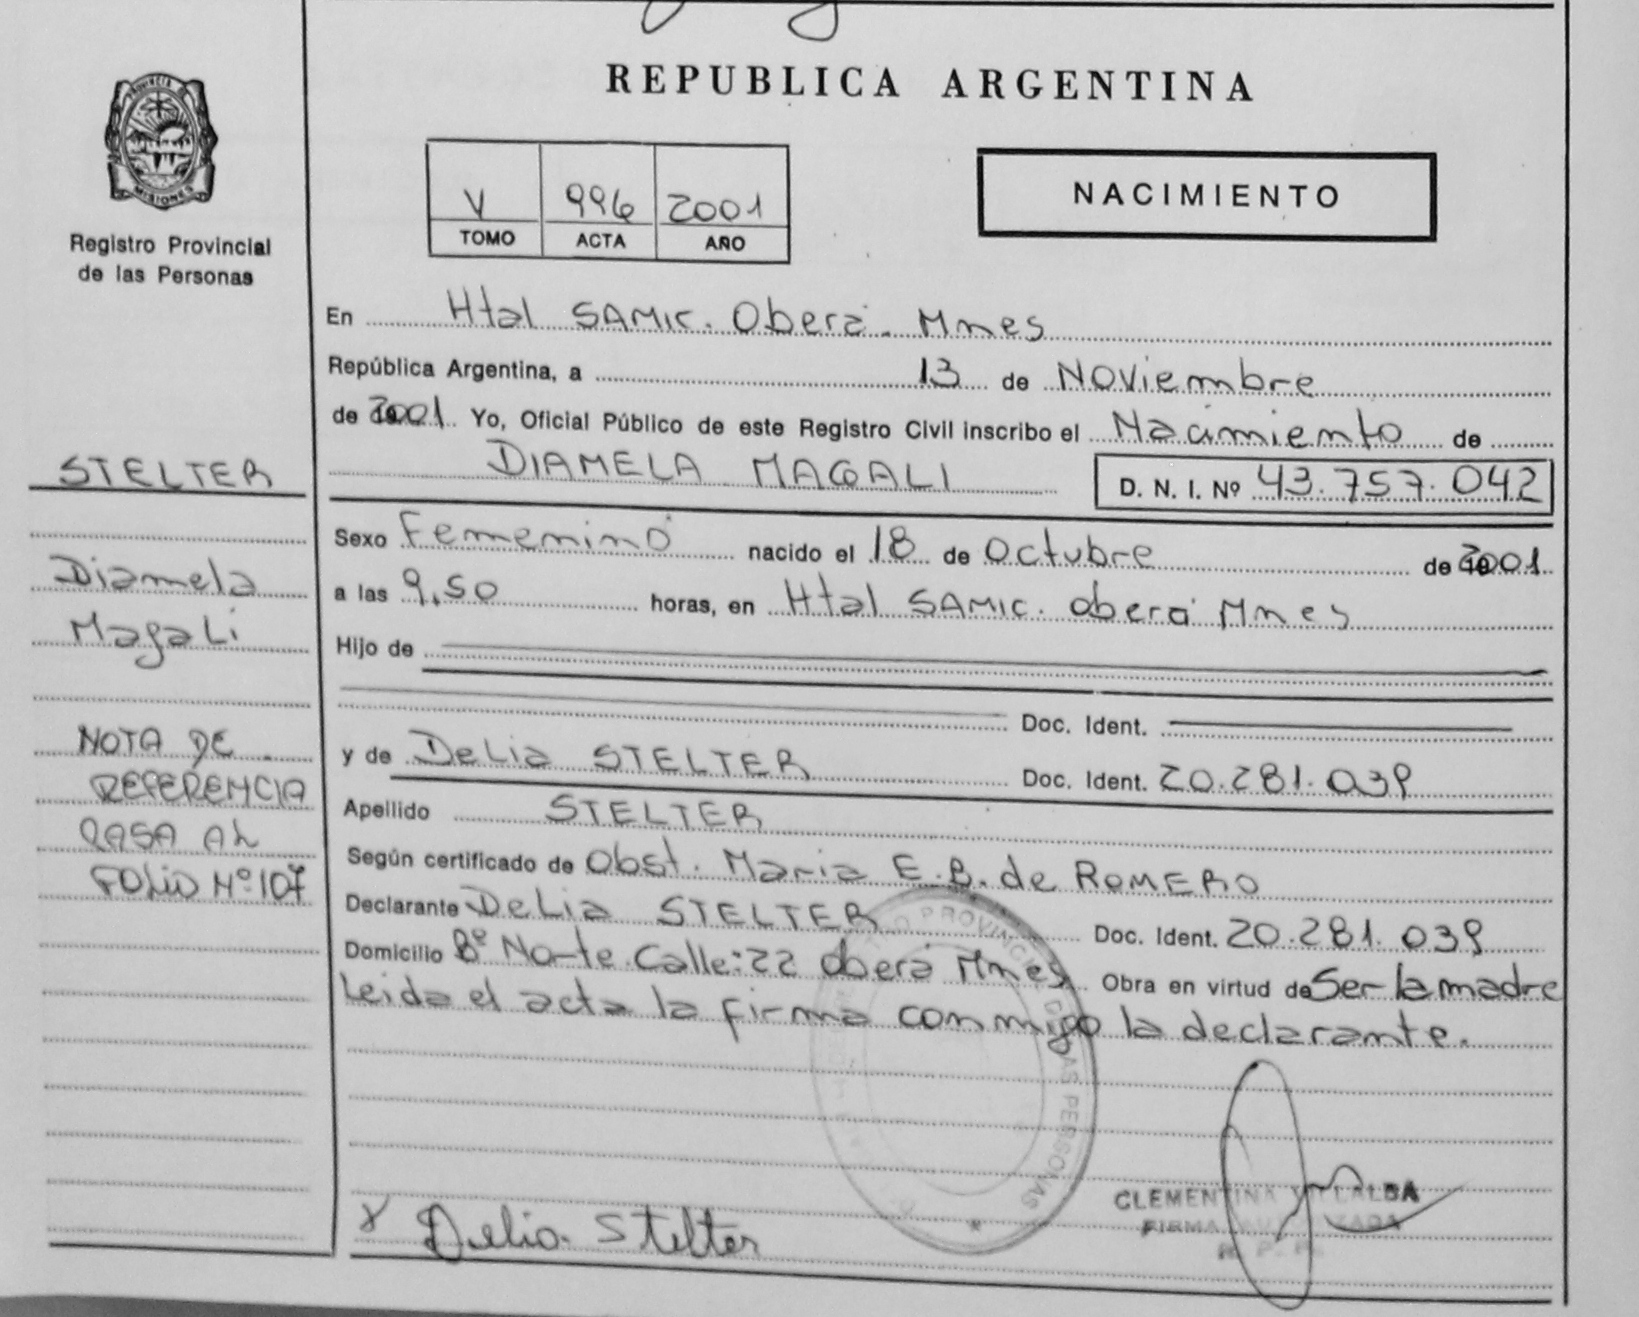 REPUBLICA ARGENTINA
PROVINCIA DE
MISIONES
Registro Provincial
de las Personas
V 996 2001
TOMO ACTA AÑO
NACIMIENTO
En Htal SAMIC. Oberá. Mnes
República Argentina, a 13 de Noviembre
de 2001. Yo, Oficial Público de este Registro Civil inscribo el Nacimiento de
DIAMELA MAGALI D. N. I. Nº 43.757.042
Sexo Femenino nacido el 18 de Octubre de 2001
a las 9,50 horas, en Htal SAMIC. Oberá Mnes
Hijo de
Doc. Ident.
y de Delia STELTER Doc. Ident. 20.281.039
Apellido STELTER
Según certificado de Obst. Maria E.B. de ROMERO
Declarante Delia STELTER Doc. Ident. 20.281.039
Domicilio Bº Norte Calle:22 Oberá Mnes Obra en virtud de Ser la madre
Leida el acta la firma conmigo la declarante.
STELTER
Diamela
Magali
NOTA DE
REFERENCIA
PASA AL
FOLIO Nº107
PROVINCIAL DE LAS PERSONAS
x Delia Stelter
CLEMENTINA VILLALBA
FIRMA AUTORIZADA
R. P. P.